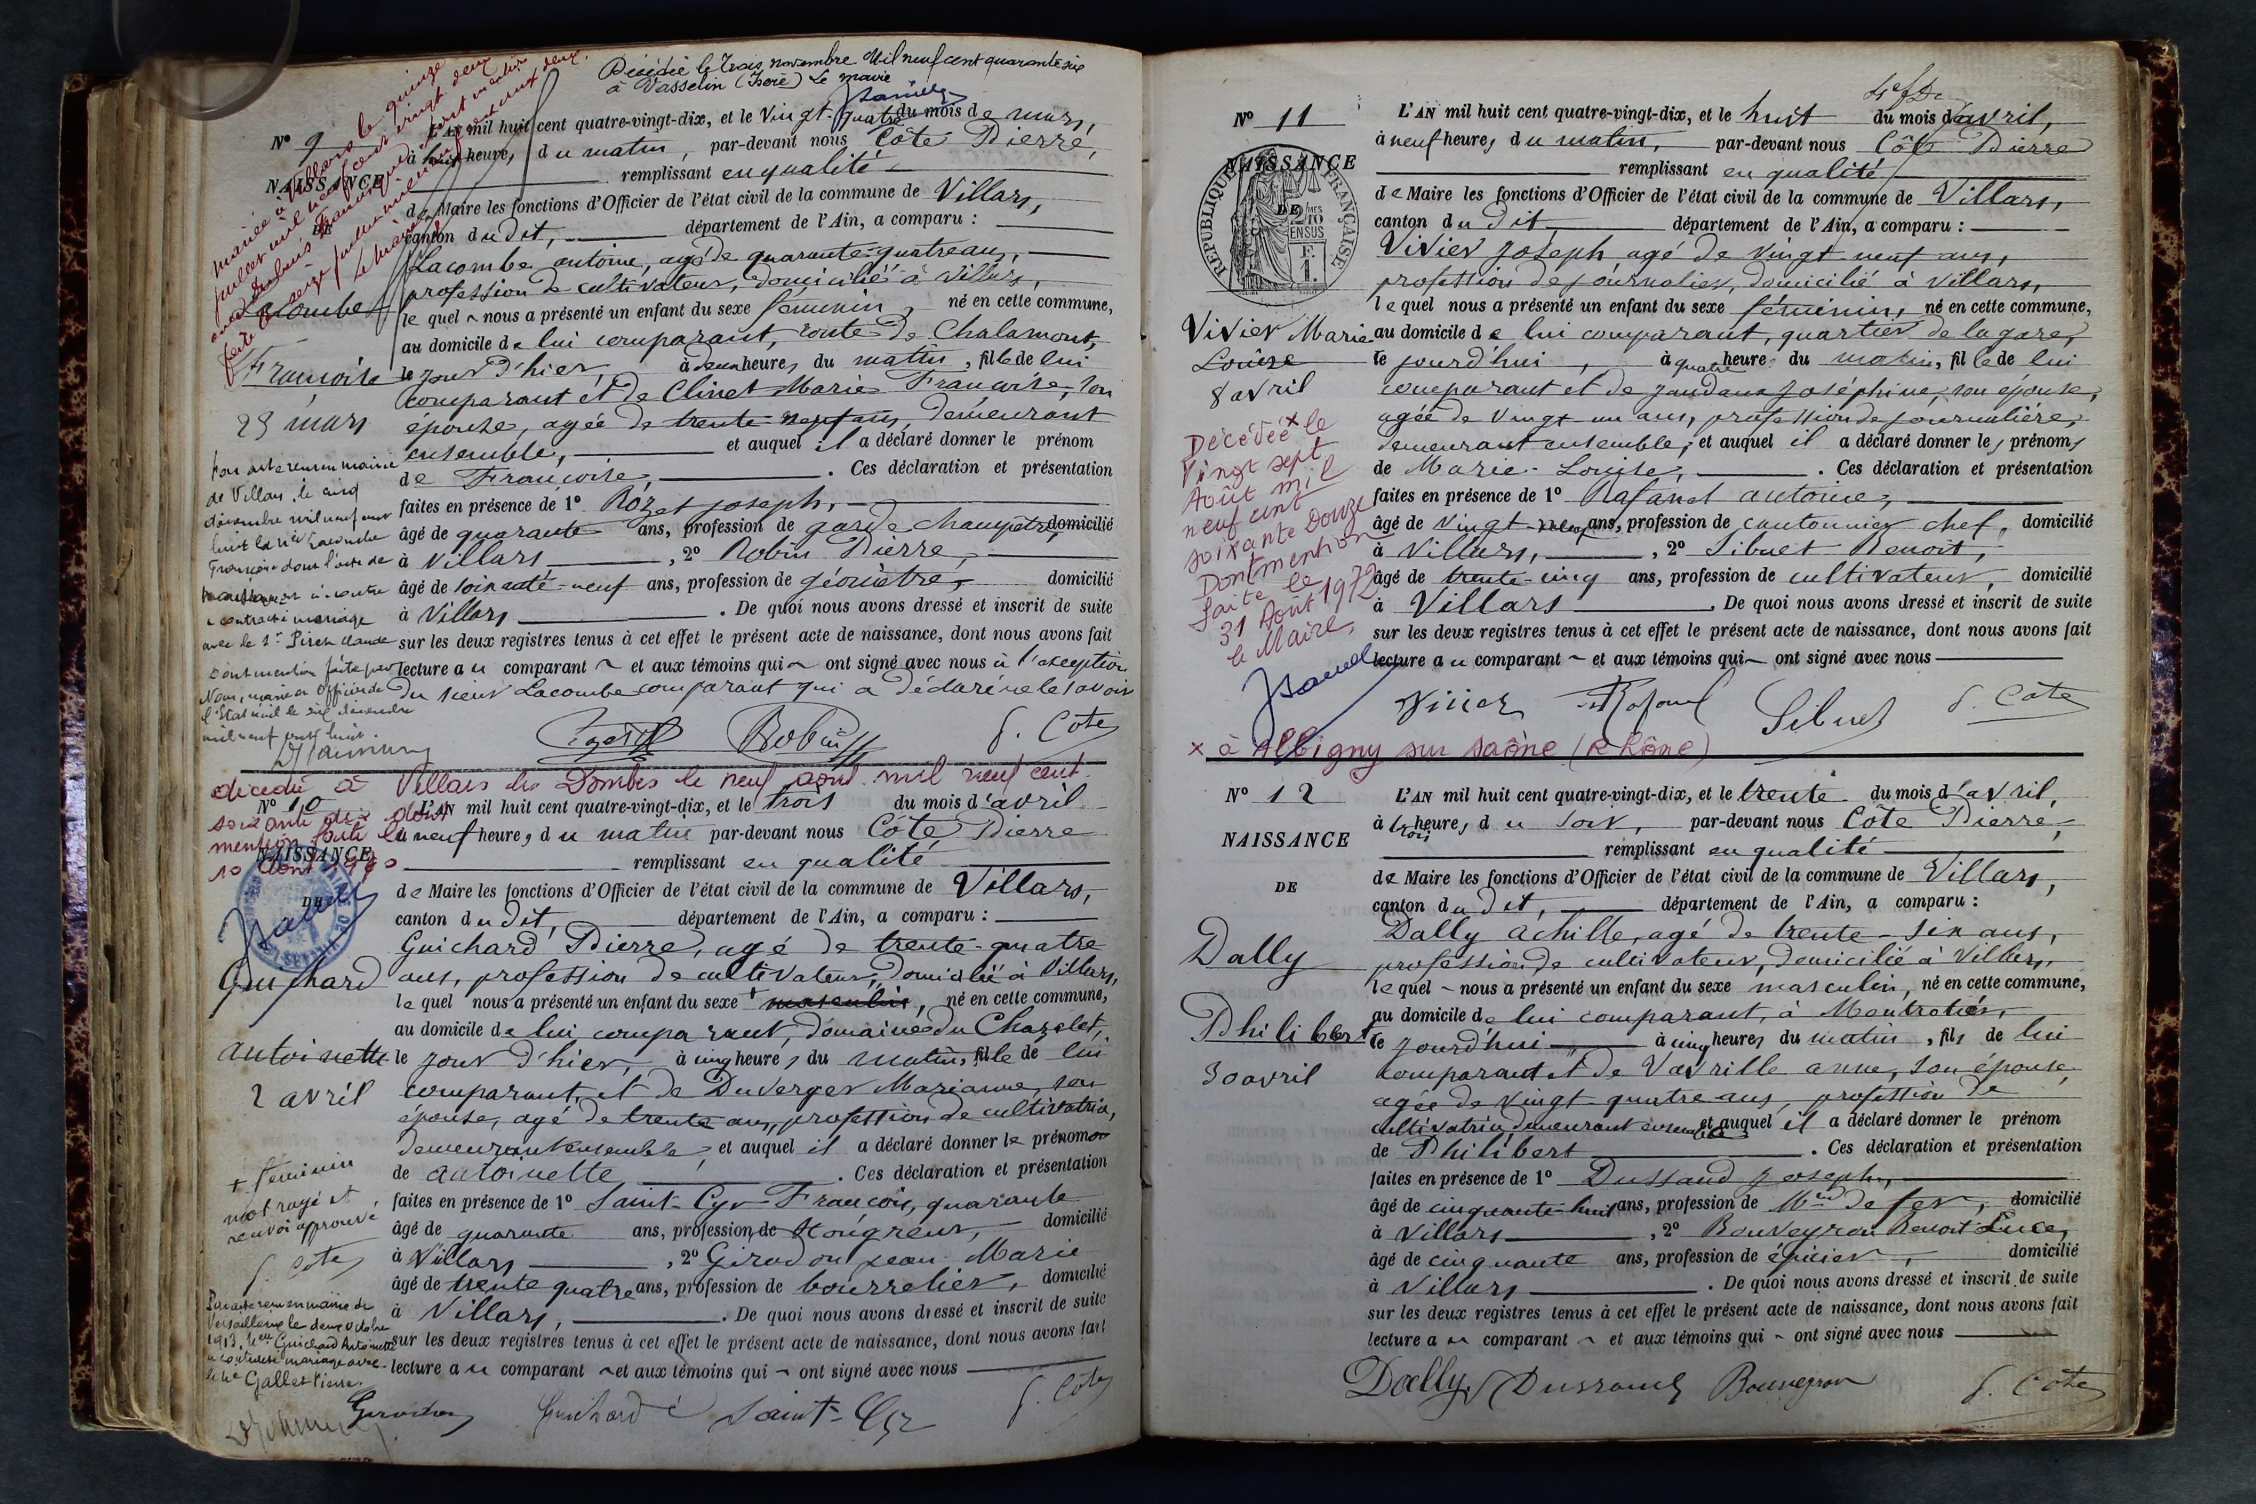 Décédée le trois novembre Mil neuf cent quarante six
à Vasselin (Isère) Le maire
Nº 9
NAISSANCE
DE
Lacombe
Françoise
23 mars
L'AN mil huit cent quatre-vingt-dix, et le vingt-quatre du mois de mars,
à heures du matin, par-devant nous Côte Pierre,
remplissant en qualité
de Maire les fonctions d'Officier de l'état civil de la commune de Villars,
canton du dit, département de l'Ain, a comparu :
Lacombe antoine, agé de quarante-quatre ans,
profession de cultivateur, domicilié à Villars,
le quel nous a présenté un enfant du sexe féminin, né en cette commune,
au domicile de lui comparant, route de Chalamont,
le jour d'hier, à deux heures du matin, fille de lui
comparant et de Clinet Marie Françoise, son
épouse, agée de trente-neuf ans, demeurant
ensemble, et auquel il a déclaré donner le prénom
de Françoise, . Ces déclaration et présentation
faites en présence de 1º Rozet joseph,
âgé de quarante ans, profession de garde champêtre, domicilié
à Villars, , 2º Robin Pierre,
âgé de soixante-neuf ans, profession de géomètre, domicilié
à Villars . De quoi nous avons dressé et inscrit de suite
sur les deux registres tenus à cet effet le présent acte de naissance, dont nous avons fait
lecture au comparant et aux témoins qui ont signé avec nous à l'exception
du sieur Lacombe comparant qui a déclaré ne le savoir
Robin P. Côte
Par acte reçu en mairie
de Villars, le cinq
décembre mil neuf cent
huit la née Lacombe
Françoise dont l'acte de
naissance ci-contre
a contracté mariage
avec le Sr Claude
dont mention faite par
Nous, maire Officier de
l'Etat civil le six décembre
mil neuf cent huit.
décédée à Villars les Dombes le neuf août mil neuf cent
soixante dix
mention faite le
10 août 1970
Nº 10
NAISSANCE
DE
Guichard
antoinette
2 avril
L'AN mil huit cent quatre-vingt-dix, et le trois du mois d'avril
à neuf heures du matin par-devant nous Côte Pierre
remplissant en qualité
de Maire les fonctions d'Officier de l'état civil de la commune de Villars,
canton du dit, département de l'Ain, a comparu :
Guichard Pierre, agé de trente-quatre
ans, profession de cultivateur, domicilié à Villars,
le quel nous a présenté un enfant du sexe + masculin, né en cette commune,
au domicile de lui comparant, domaine du Chazelet,
le jour d'hier, à cinq heures du matin, fille de lui
comparant, et de Duverger Marianne, son
épouse, agé de trente ans, profession de cultivatrice,
demeurant ensemble, et auquel il a déclaré donner le prénom
de antoinette . Ces déclaration et présentation
faites en présence de 1º Saint-Cyr François, quarante
âgé de quarante ans, profession de Hongreur, domicilié
à Villars , 2º Girodon jean Marie
âgé de trente quatre ans, profession de bourrelier, domicilié
à Villars, . De quoi nous avons dressé et inscrit de suite
sur les deux registres tenus à cet effet le présent acte de naissance, dont nous avons fait
lecture au comparant et aux témoins qui ont signé avec nous
Girodon Guichard Saint-Cyr P. Côte
+ féminin
mot rayé et
renvoi approuvé
P. Côte
Par acte reçu en mairie de
le deux octobre
1913, Guichard Antoinette
a contracté mariage avec
Gallet Pierre.
Nº 11
NAISSANCE
DE
RÉPUBLIQUE FRANÇAISE
2/10 EN SUS
Vivier Marie
Louise
8 avril
L'AN mil huit cent quatre-vingt-dix, et le huit du mois d'avril,
à neuf heures du matin, par-devant nous Côte Pierre
remplissant en qualité
de Maire les fonctions d'Officier de l'état civil de la commune de Villars,
canton du dit département de l'Ain, a comparu :
Vivier joseph agé de vingt neuf ans,
profession de journalier, domicilié à Villars,
le quel nous a présenté un enfant du sexe féminin, né en cette commune,
au domicile de lui comparant, quartier de la gare,
le jourd'hui, à quatre heure du matin, fille de lui
comparant et de joséphine, son épouse,
agée de vingt un ans, profession de journalière,
demeurant ensemble, et auquel il a déclaré donner les prénoms
de Marie-Louise, . Ces déclaration et présentation
faites en présence de 1º Rafanel antoine,
âgé de vingt-neuf ans, profession de cantonnier chef, domicilié
à Villars, , 2º Sibuet Benoit,
âgé de trente-cinq ans, profession de cultivateur, domicilié
à Villars . De quoi nous avons dressé et inscrit de suite
sur les deux registres tenus à cet effet le présent acte de naissance, dont nous avons fait
lecture au comparant et aux témoins qui ont signé avec nous
Vivier Rafanel Sibuet P. Côte
Décédée x le
Vingt sept
Août mil
neuf cent
soixante Douze
Dont mention
faite le
31 Août 1972
le Maire,
x à Albigny sur Saône (Rhône)
Nº 12
NAISSANCE
DE
Dally
Philibert
30 avril
L'AN mil huit cent quatre-vingt-dix, et le trente du mois d'avril,
à trois heures du soir, par-devant nous Côte Pierre,
remplissant en qualité
de Maire les fonctions d'Officier de l'état civil de la commune de Villars,
canton du dit, département de l'Ain, a comparu :
Dally achille, agé de trente-six ans,
profession de cultivateur, domicilié à Villars,
le quel nous a présenté un enfant du sexe masculin, né en cette commune,
au domicile de lui comparant, à Montratier,
le jourd'hui à cinq heures du matin, fils de lui
comparant et de Vavrille anne, son épouse
agée de vingt-quatre ans, profession de
cultivatrice demeurant ensemble et auquel il a déclaré donner le prénom
de Philibert . Ces déclaration et présentation
faites en présence de 1º Dussaud joseph,
âgé de cinquante-huit ans, profession de Md de fer, domicilié
à Villars , 2º Bouveyron Benoit Luce,
âgé de cinquante ans, profession de épicier, domicilié
à Villars . De quoi nous avons dressé et inscrit de suite
sur les deux registres tenus à cet effet le présent acte de naissance, dont nous avons fait
lecture au comparant et aux témoins qui ont signé avec nous
Dally Dussaud Bouveyron P. Côte